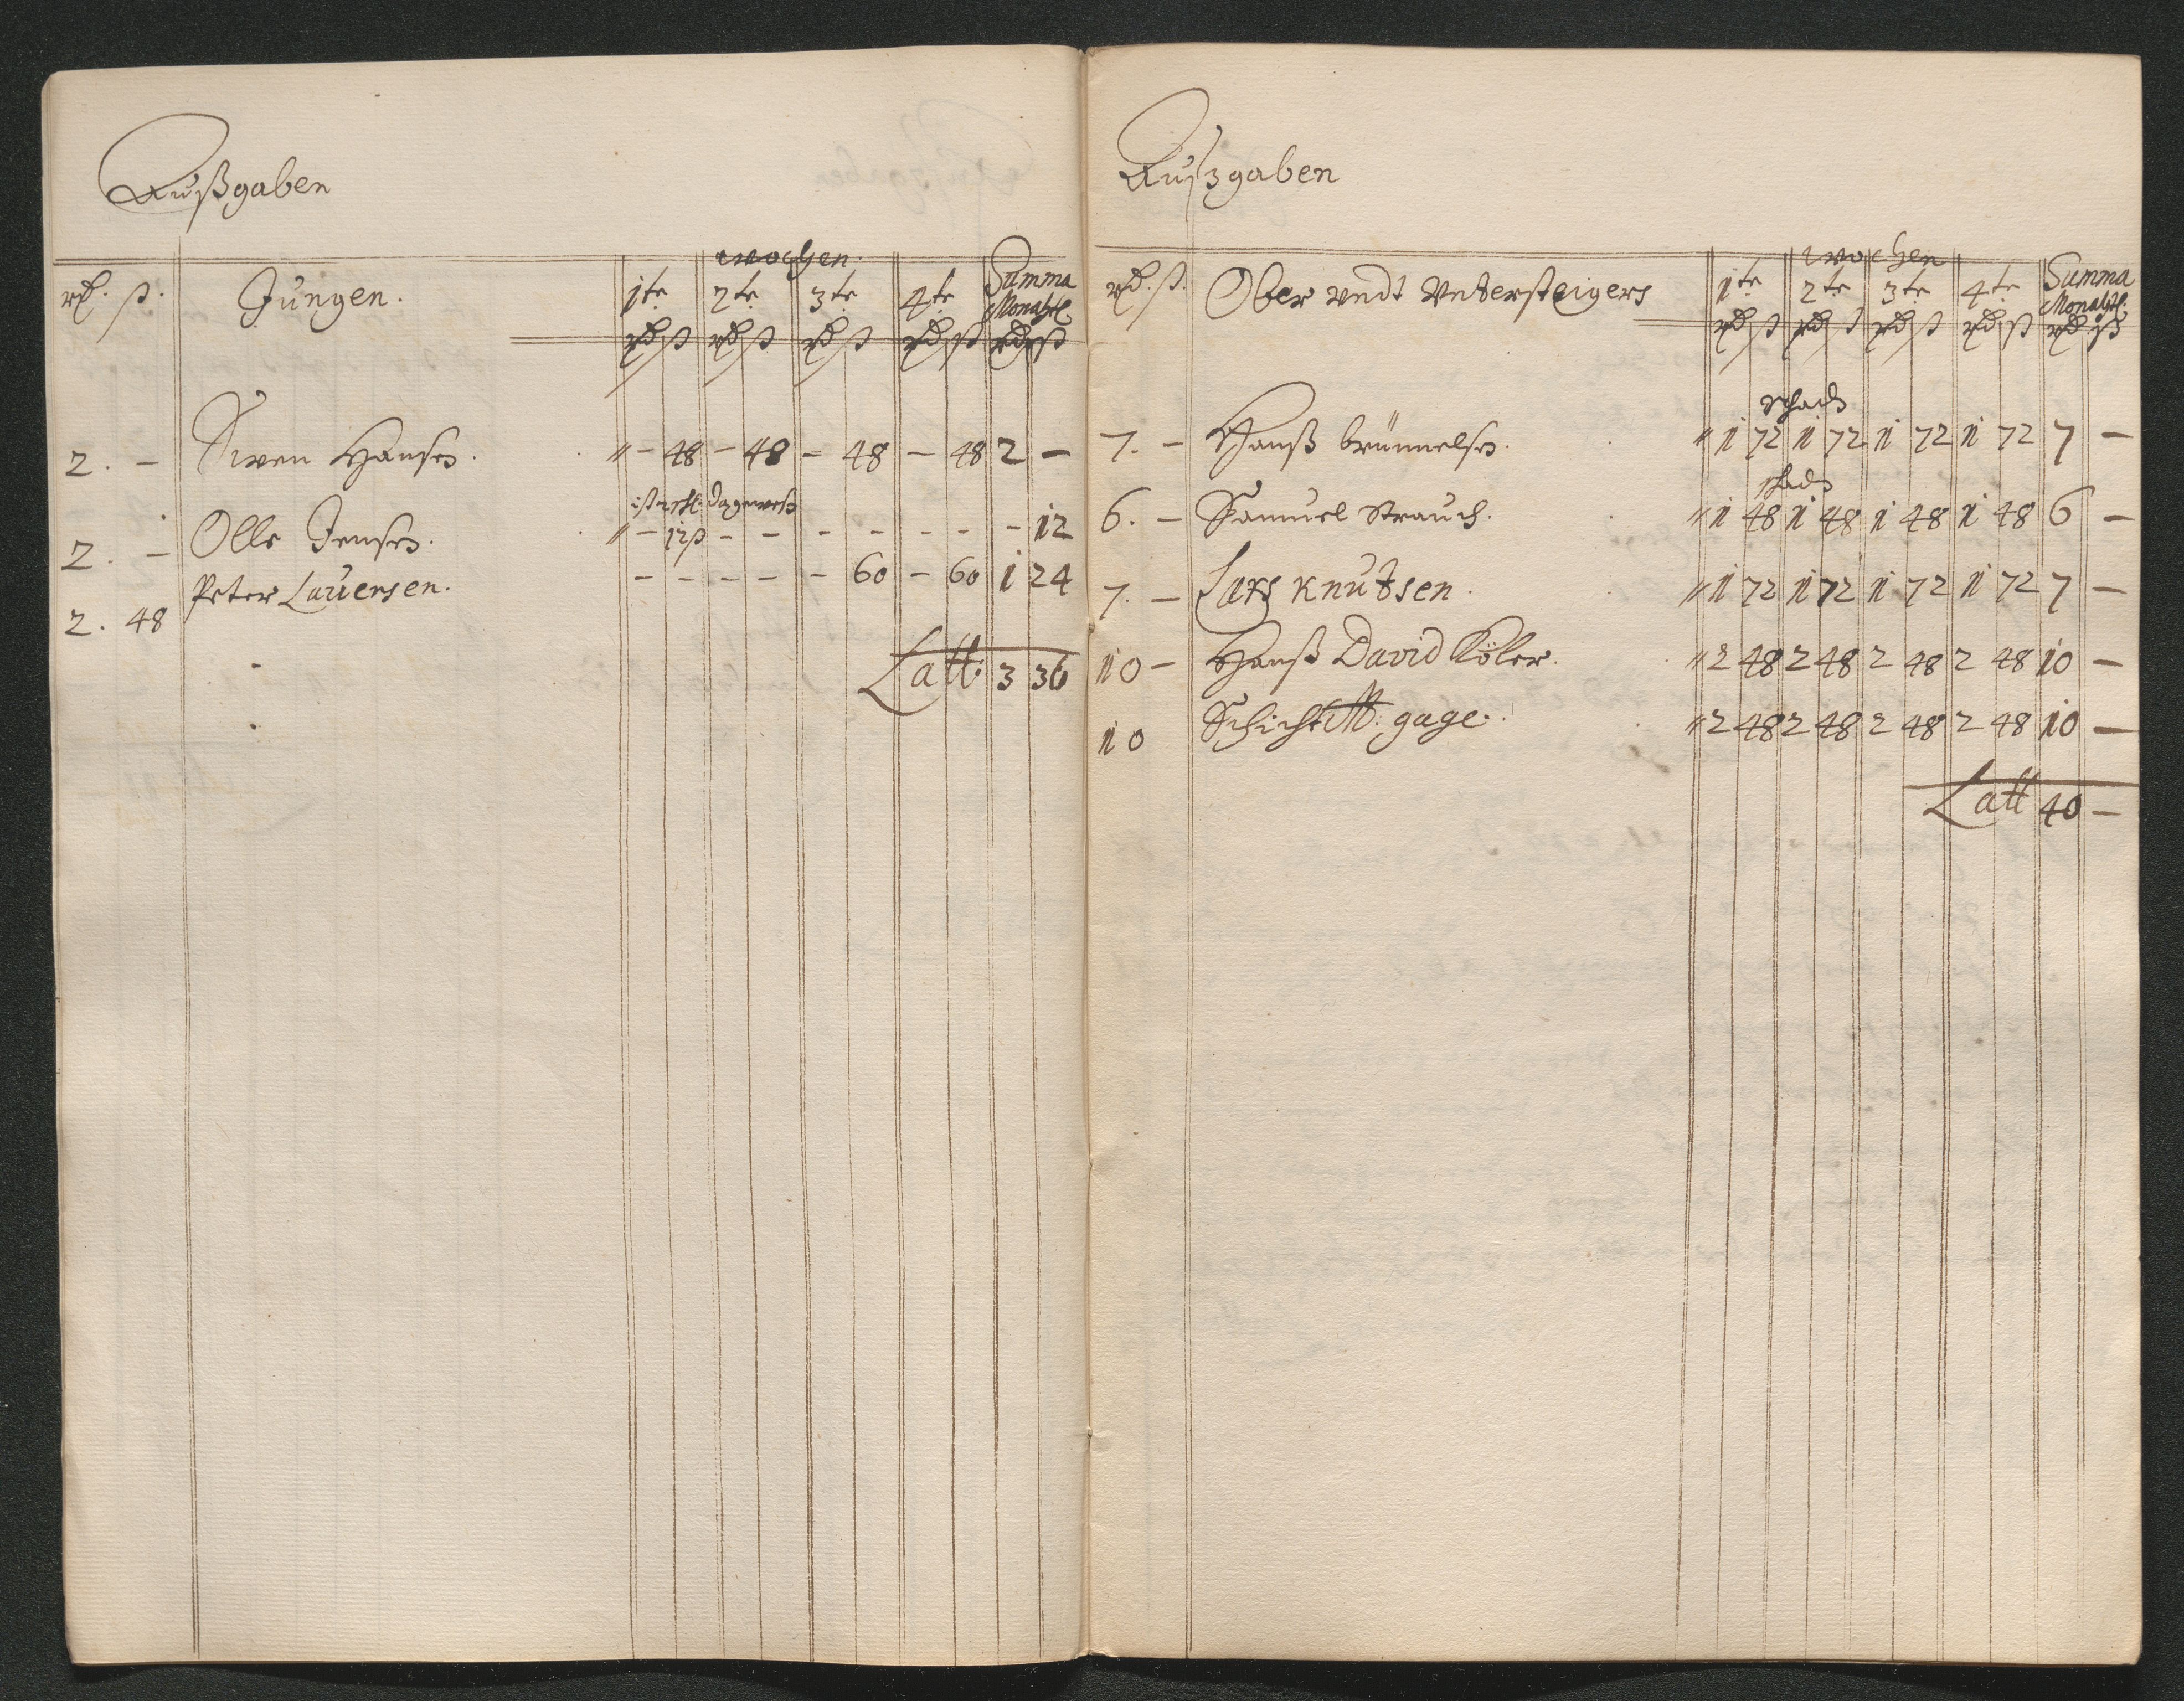 Außgaben
wochen.
rd. ß. Jungen. 1te 2te 3te 4te Summa Monahtl.
rd ß rd ß rd ß rd ß rd ß
2. – Swen Hansen. " – 48 – 48 – 48 – 48 2 –
2. – Olle Jensen. " – 12ß – – – – – – – 12
2. 48 Peter Lauersen. – – – – – 60 – 60 1 24
Latt. 3 36
Außgaben
wochen
rd. ß. Ober undt Untersteigers 1te 2te 3te 4te Summa Monahtl.
rd ß rd ß rd ß rd ß rd ß
7. – Hanß brünnelsen. " 1 72 1 72 1 72 1 72 7 –
6. – Samuel Strauch. " 1 48 1 48 1 48 1 48 6 –
7. – Lars Knutsen. " 1 72 1 72 1 72 1 72 7 –
10 – Hanß David Köler. " 2 48 2 48 2 48 2 48 10 –
10 SchichtM. gage. " 2 48 2 48 2 48 2 48 10 –
Latt 40 –